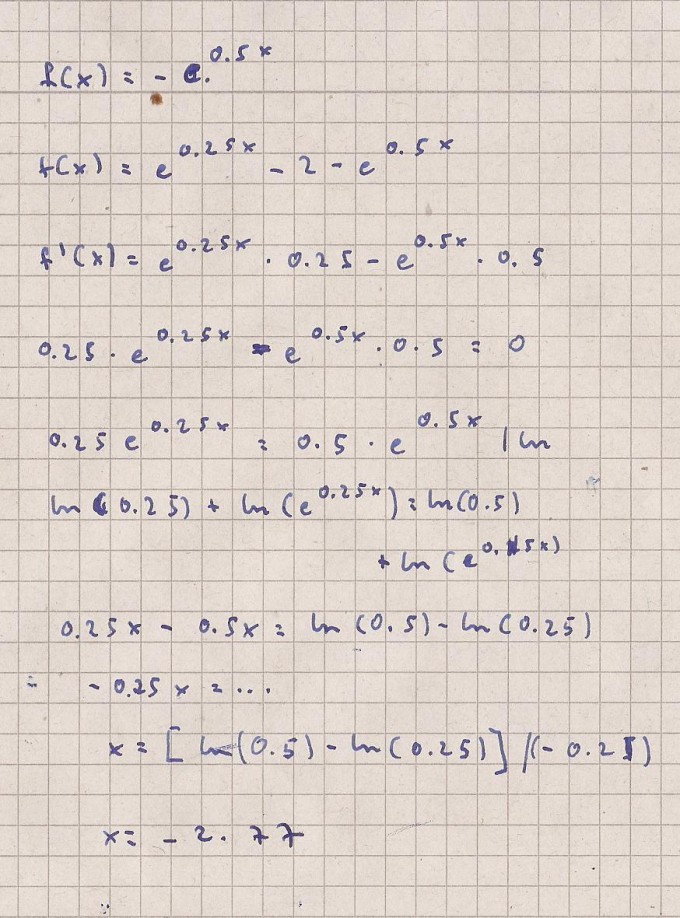 f(x) = - e^0.5x
f(x) = e^0.25x - 2 - e^0.5x
f'(x) = e^0.25x · 0.25 - e^0.5x · 0.5
0.25 · e^0.25x - e^0.5x · 0.5 = 0
0.25 e^0.25x = 0.5 · e^0.5x | ln
ln (0.25) + ln (e^0.25x) = ln(0.5)
+ ln (e^0.5x)
0.25x - 0.5x = ln (0.5) - ln (0.25)
= - 0.25 x = ...
x = [ ln(0.5) - ln(0.25)] /(- 0.25)
x = - 2.77